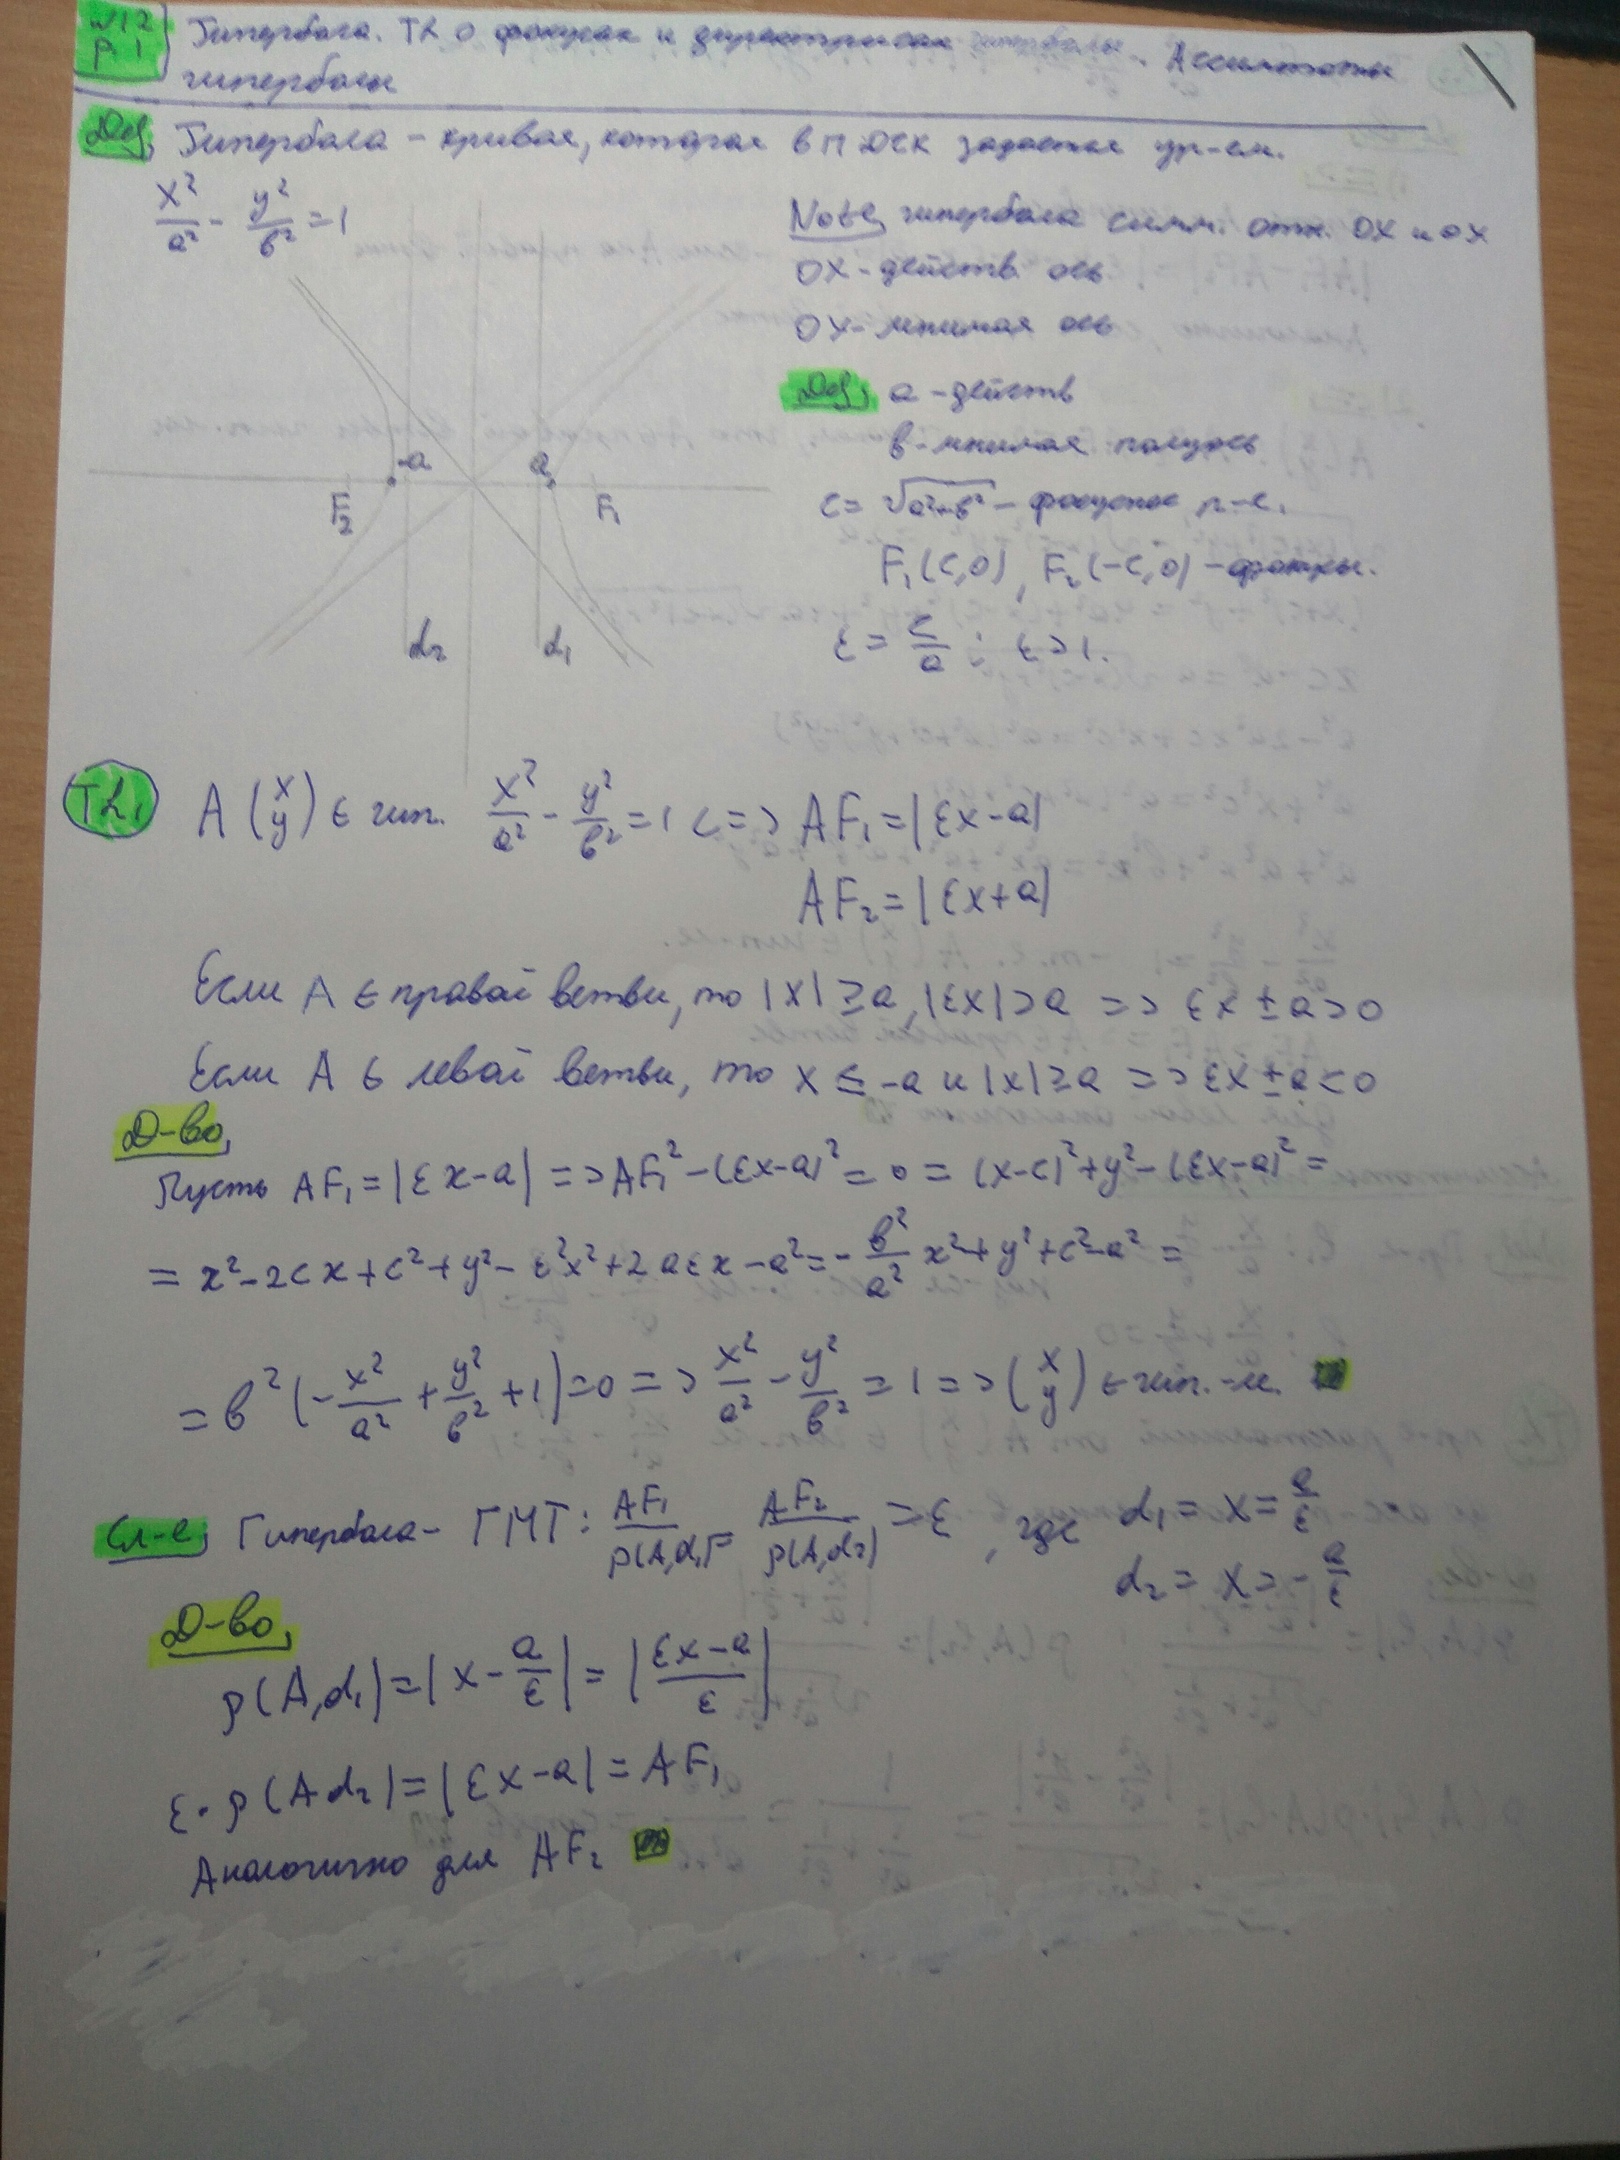 №12
p1
Гипербола. Th о фокусах и директрисах гиперболы. Ассимптоты
гиперболы
Def, Гипербола - кривая, которая в ПДСК задается ур-ем.
x²/a² - y²/b² = 1
Note, гипербола симм. отн. OX и OY
OX - действ. ось
OY - мнимая ось
Def, a - действ
b - мнимая полуось
c = √(a²+b²) - фокусное р-е.
F₁(c,0), F₂(-c,0) - фокусы.
ε = c/a ; ε > 1.
-a a
F₂ F₁
d₂ d₁
Th, A (x y) ∈ гип. x²/a² - y²/b² = 1 <=> AF₁ = |εx-a|
AF₂ = |εx+a|
Если A ∈ правой ветви, то |x| ≥ a, |εx| > a => εx ± a > 0
Если A ∈ левой ветви, то x ≤ -a и |x| ≥ a => εx ± a < 0
D-во,
Пусть AF₁ = |εx-a| => AF₁² - (εx-a)² = 0 = (x-c)² + y² - (εx-a)² =
= x² - 2cx + c² + y² - ε²x² + 2aεx - a² = - b²/a² x² + y² + c² - a² =
= b² (- x²/a² + y²/b² + 1) = 0 => x²/a² - y²/b² = 1 => (x y) ∈ гип.-ле.
Сл-е, Гипербола - ГМТ: AF₁/ρ(A,d₁) = AF₂/ρ(A,d₂) = ε, где d₁ = x = a/ε
d₂ = x = - a/ε
D-во,
ρ(A,d₁) = |x - a/ε| = |(εx-a)/ε|
ε·ρ(A d₂) = |εx-a| = AF₁
Аналогично для AF₂